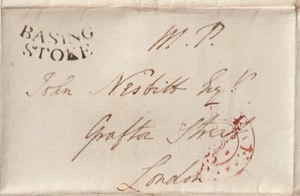 BASING
STOKE
M.P.
John Nesbitt Esqr.
Grafton Street
London